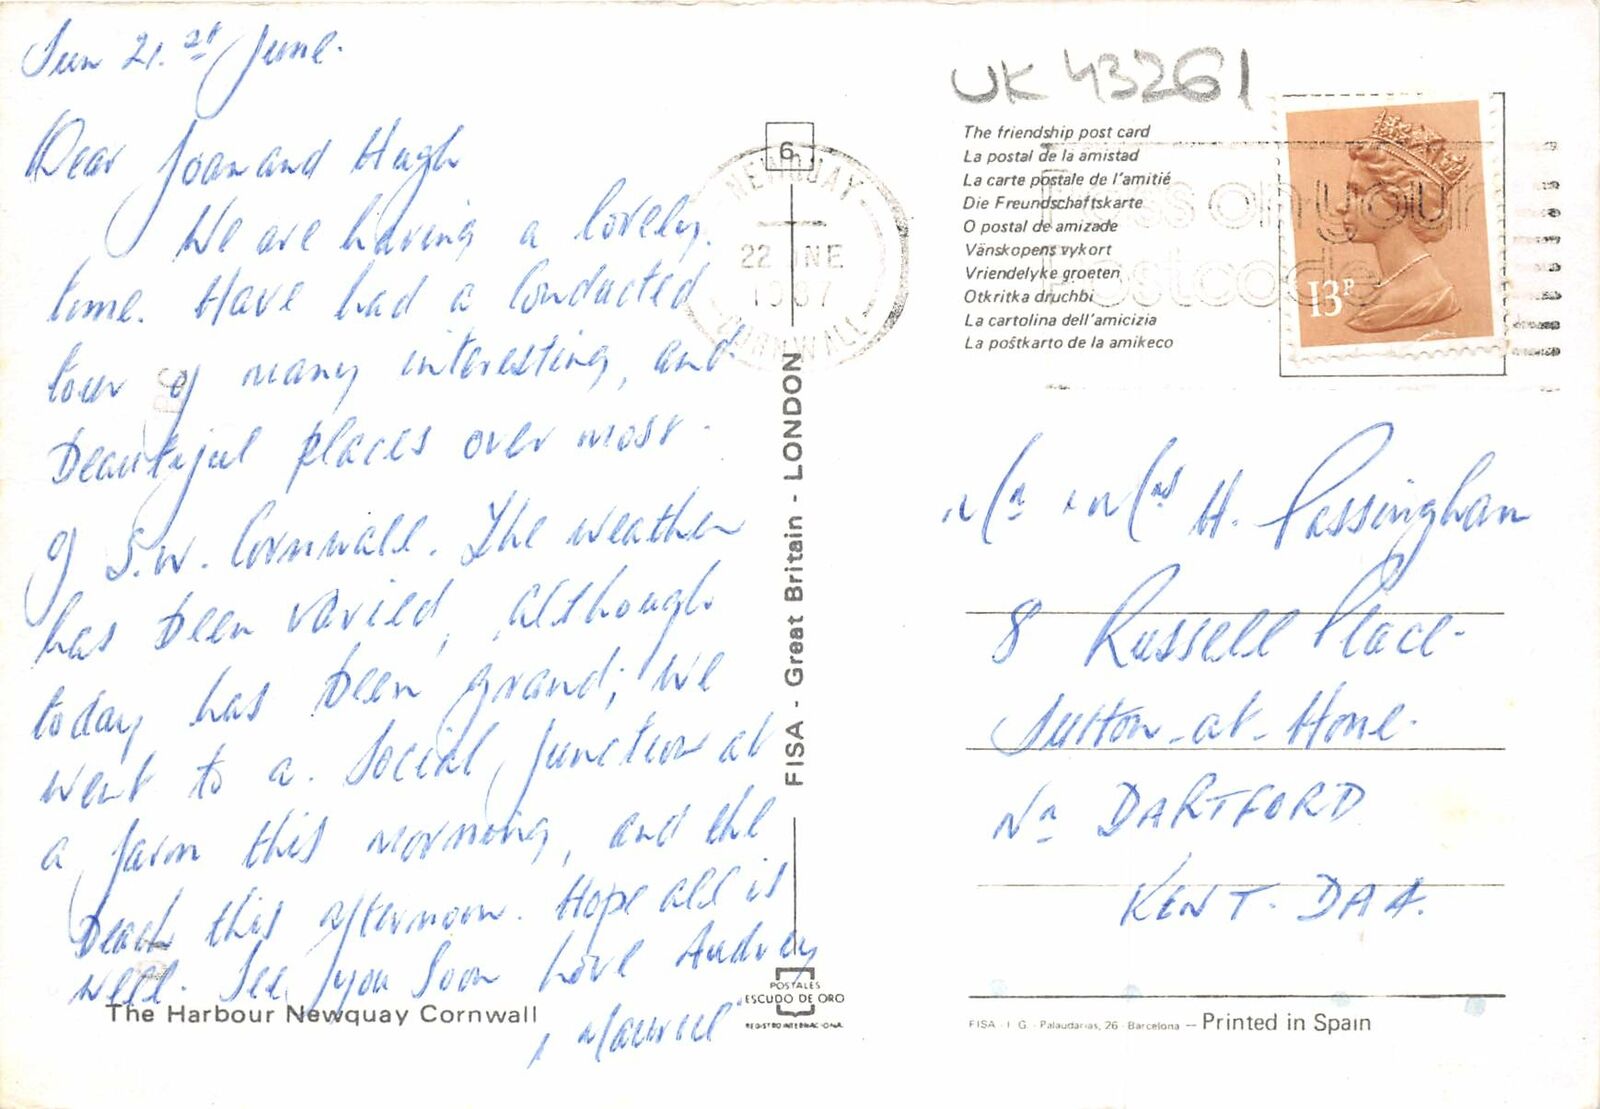 Sun 21.st June.
Dear Joan and Hugh
We are having a lovely
time. Have had a conducted
tour of many interesting, and
beautiful places over most
of S.W. Cornwall. The weather
has been varied, although
today has been grand; we
went to a social function at
a farm this morning, and the
beach this afternoon. Hope all is
well. See you soon Love Audrey
, Maurice
The Harbour Newquay Cornwall
6
NEWQUAY
22 NE
1987
CORNWALL
FISA - Great Britain - LONDON
POSTALES
ESCUDO DE ORO
REGISTRO INTERNACIONAL
UK 43261
The friendship post card
La postal de la amistad
La carte postale de l'amitié
Die Freundschaftskarte
O postal de amizade
Vänskopens vykort
Vriendelyke groeten
Otkritka druchbi
La cartolina dell'amicizia
La poŝtkarto de la amikeco
Pass on your
Postcode
13P
Mr & Mrs H. Passingham
8 Russell Place
Sutton-at-Hone
Nr DARTFORD
KENT. DA4.
FISA - I. G. - Palaudarias, 26 - Barcelona — Printed in Spain